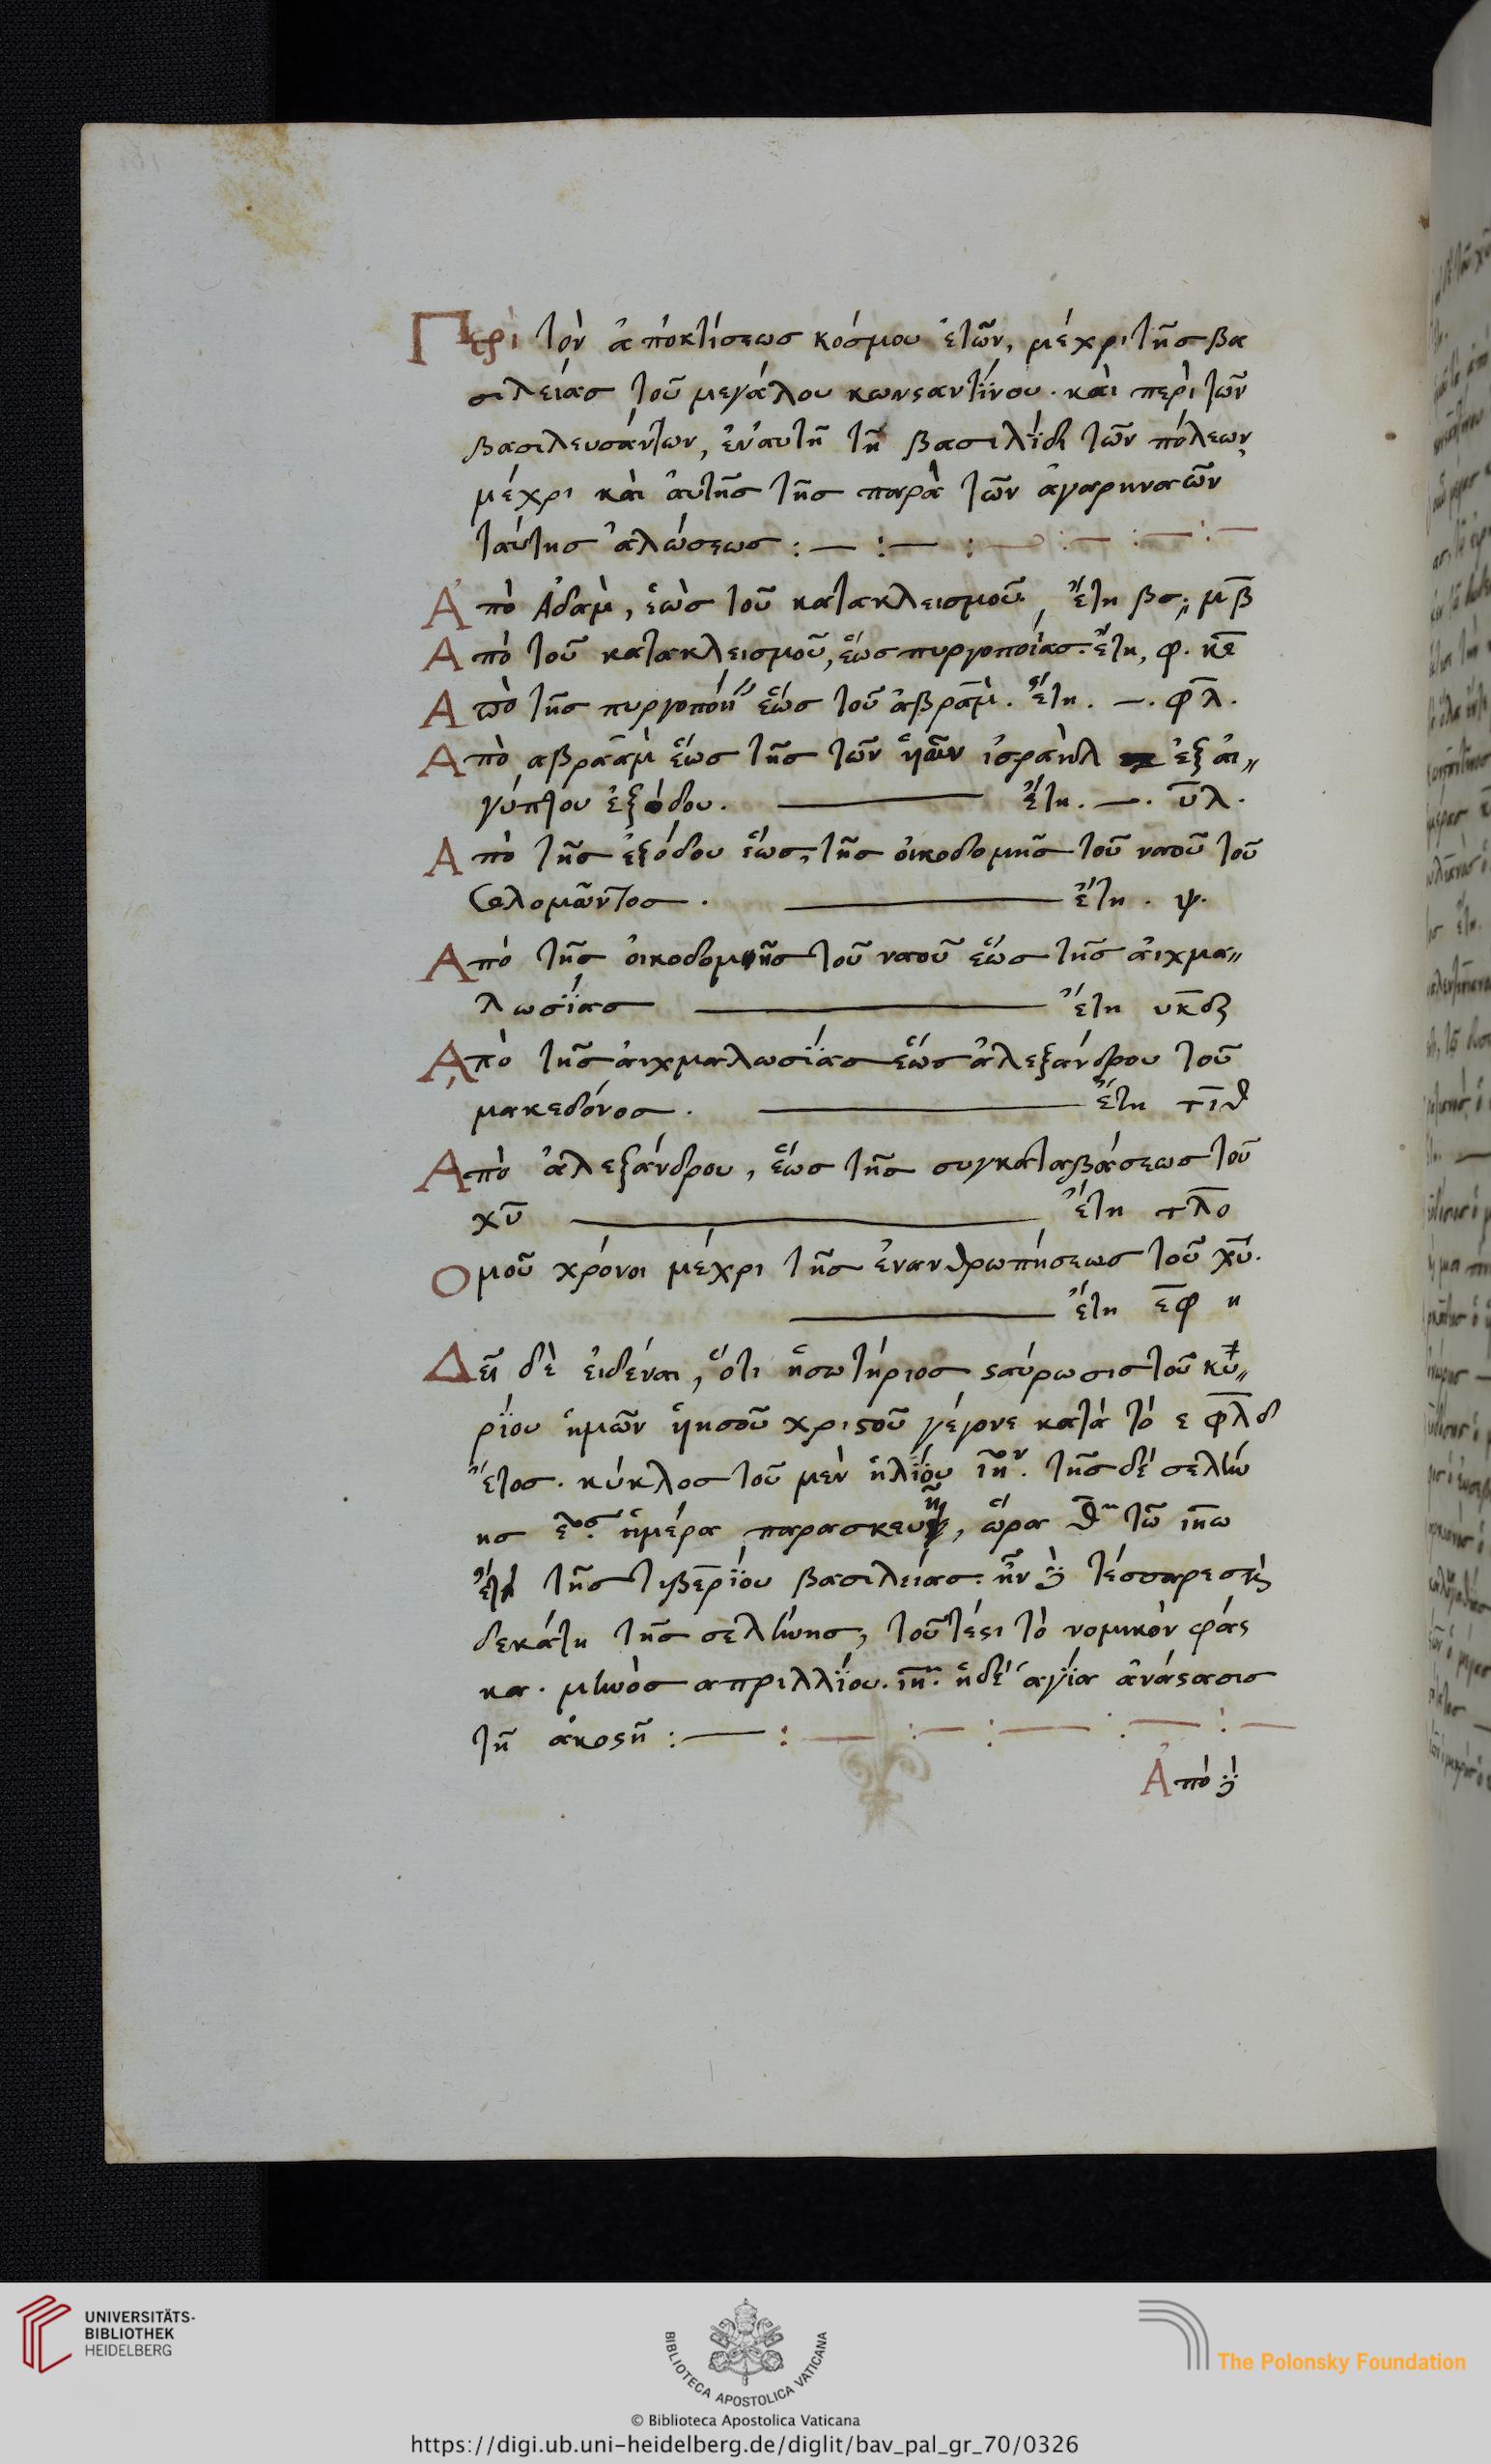 Περὶ τὸν ἀποκτίσεως κόσμου ἐτῶν, μέχρι τῆς βα
σιλείας τοῦ μεγάλου κωνςαντΐνου. καὶ περὶ τῶν
βασιλευσάντων, ἐν αυτῆ τῆ βασιλΐδι τῶν πόλεων
μέχρι καὶ ἀυτῆς τῆς παρὰ τῶν ἀγαρηναῶν
ταύτης ἀλώσεως :— :— :— :— :— :—
Ἀπὸ Ἀδαμ, ἑὼς τοῦ κατακλεισμοῦ, ἔτη βσ; μβ
Ἀπὸ τοῦ κατακλεισμοῦ, ἕως πυργοποίας. ἔτη, φ. κε
Ἀπὸ τῆς πυργοποιη ἕως τοῦ ἀβραμ. ἔτη. —. φλ.
Ἀπὸ αβραὰμ ἕως τῆς τῶν ἡῶν ἰσραὴλ ἐξ ἀι〃
γύπτου ἐξόδου. — ἔτη. —. υλ.
Ἀπὸ τῆς ἐξόδου ἕως, τῆς ὀικοδομῆς τοῦ ναοῦ τοῦ
Σολομῶντος. — ἔτη. ψ.
Ἀπὸ τῆς ὀικοδομῆς τοῦ ναοῦ ἕως τῆς ἀιχμα〃
λωσΐας — ἔτη
Ἀπὸ τῆς ἀιχμαλωσΐας ἕως ἀλεξάνδρου τοῦ
μακεδόνος. — ἔτη τιθ
Ἀπὸ ἀλεξάνδρου, ἕως τῆς συγκαταβάσεως τοῦ
χυ — ἔτη τλο
Ομοῦ χρόνοι μέχρι τῆς ἐνανθρωπήσεως τοῦ χυ.
— ἔτη εφ η
Δεῖ δὲ ἐιδέναι, ὅτι ἡ σωτήριος ςαύρωσις τοῦ κυ〃
ρΐου ἡμῶν ἡησοῦ χριςοῦ γέγονε κατὰ τὸ ε φλδ
ἔτος. κύκλος τοῦ μὲν ἡλΐου ιην. τῆς δὲ σελήν
ης ε. ἡμέρα παρασκευῆ, ὥρα θη τῶ ιηω
ἔτη τῆς τιβερΐου βασιλείας. ἦν τέσσαρεσκ
δεκάτη τῆς σελήνης, τοῦτέςι τὸ νομικὸν φάς
κα. μηνὸς απριλλΐου. ιη. ἡ δὲ ἁγΐα ἀνάςασις
τῆ ἀκοςῆ :— :— :— :— :— :—
Ἀπὸ
UNIVERSITÄTS-
BIBLIOTHEK
HEIDELBERG
BIBLIOTECA APOSTOLICA VATICANA
The Polonsky Foundation
© Biblioteca Apostolica Vaticana
https://digi.ub.uni-heidelberg.de/diglit/bav_pal_gr_70/0326